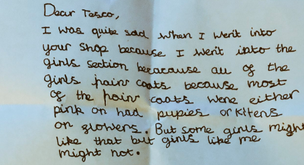 Dear Tesco,
I was quite sad when I went into
your shop because I went into the
girls section beracause all of the
girls pair coats because most
of the pair coats were either
pink or had pupies or kitens
or flowers. But some girls might
like that but girls like me
might not.